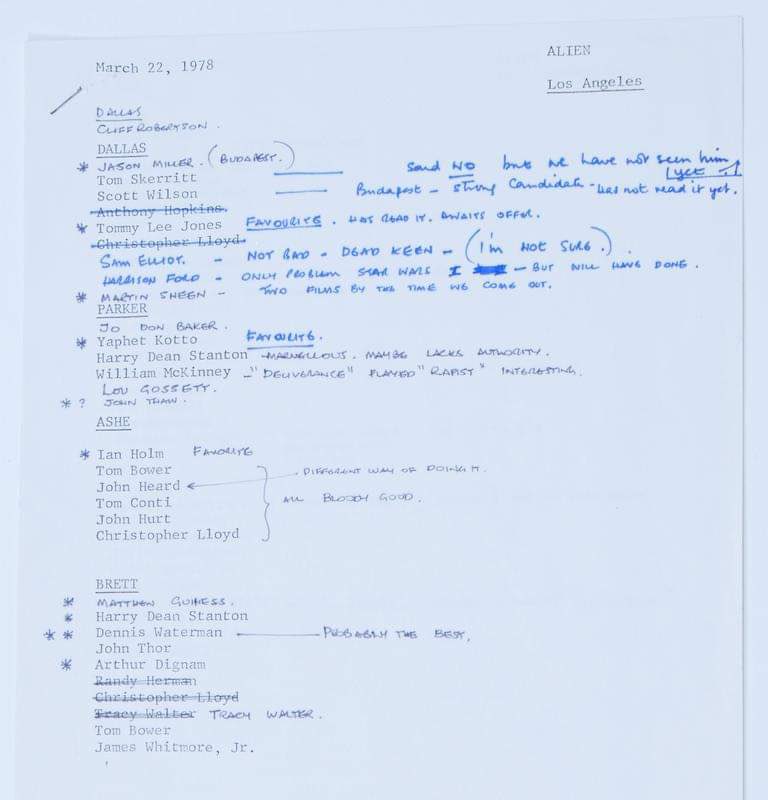 March 22, 1978
ALIEN
Los Angeles
DALLAS
CLIFF ROBERTSON.
DALLAS
* JASON MILLER. (BUDAPEST.) Said NO but we have not seen him (yet!)
Tom Skerritt
Scott Wilson Budapest - strong Candidate - has not read it yet.
Anthony Hopkins.
* Tommy Lee Jones FAVOURITE. HAS READ IT. AWAITS OFFER.
Christopher Lloyd.
SAM ELLIOT. - NOT BAD - DEAD KEEN - (I'm NOT SURE.).
HARRISON FORD - ONLY PROBLEM STAR WARS I - BUT WILL HAVE DONE.
* MARTIN SHEEN - TWO FILMS BY THE TIME WE COME OUT.
PARKER
JO DON BAKER.
* Yaphet Kotto FAVOURITE.
Harry Dean Stanton - MARVELLOUS. MAYBE LACKS AUTHORITY.
William McKinney - "DELIVERANCE" PLAYED "RAPIST" INTERESTING.
LOU GOSSETT.
* ? JOHN THAW.
ASHE
* Ian Holm FAVORITE
Tom Bower
DIFFERENT WAY OF DOING IT.
John Heard
Tom Conti ALL BLOODY GOOD.
John Hurt
Christopher Lloyd
BRETT
* MATTHEW GUINESS.
* Harry Dean Stanton
* * Dennis Waterman PROBABLY THE BEST,
John Thor
* Arthur Dignam
Randy Herman
Christopher Lloyd
Tracy Walter TRACY WALTER.
Tom Bower
James Whitmore, Jr.